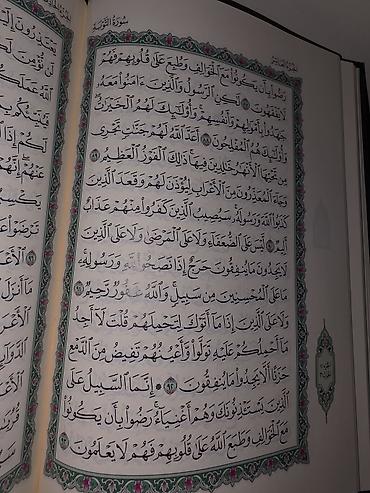 سُورَةُ التَّوْبَةِ
رَضُوا۟ بِأَن يَكُونُوا۟ مَعَ ٱلْخَوَالِفِ وَطُبِعَ عَلَىٰ قُلُوبِهِمْ فَهُمْ
لَا يَفْقَهُونَ ٨٧ لَٰكِنِ ٱلرَّسُولُ وَٱلَّذِينَ ءَامَنُوا۟ مَعَهُۥ
جَٰهَدُوا۟ بِأَمْوَٰلِهِمْ وَأَنفُسِهِمْ ۚ وَأُو۟لَٰٓئِكَ لَهُمُ ٱلْخَيْرَٰتُ
وَأُو۟لَٰٓئِكَ هُمُ ٱلْمُفْلِحُونَ ٨٨ أَعَدَّ ٱللَّهُ لَهُمْ جَنَّٰتٍ تَجْرِى
مِن تَحْتِهَا ٱلْأَنْهَٰرُ خَٰلِدِينَ فِيهَا ۚ ذَٰلِكَ ٱلْفَوْزُ ٱلْعَظِيمُ ٨٩
وَجَآءَ ٱلْمُعَذِّرُونَ مِنَ ٱلْأَعْرَابِ لِيُؤْذَنَ لَهُمْ وَقَعَدَ ٱلَّذِينَ
كَذَبُوا۟ ٱللَّهَ وَرَسُولَهُۥ ۚ سَيُصِيبُ ٱلَّذِينَ كَفَرُوا۟ مِنْهُمْ عَذَابٌ
أَلِيمٌ ٩٠ لَّيْسَ عَلَى ٱلضُّعَفَآءِ وَلَا عَلَى ٱلْمَرْضَىٰ وَلَا عَلَى ٱلَّذِينَ
لَا يَجِدُونَ مَا يُنفِقُونَ حَرَجٌ إِذَا نَصَحُوا۟ لِلَّهِ وَرَسُولِهِۦ ۚ
مَا عَلَى ٱلْمُحْسِنِينَ مِن سَبِيلٍ ۚ وَٱللَّهُ غَفُورٌ رَّحِيمٌ ٩١
وَلَا عَلَى ٱلَّذِينَ إِذَا مَآ أَتَوْكَ لِتَحْمِلَهُمْ قُلْتَ لَآ أَجِدُ
مَآ أَحْمِلُكُمْ عَلَيْهِ تَوَلَّوا۟ وَّأَعْيُنُهُمْ تَفِيضُ مِنَ ٱلدَّمْعِ
حَزَنًا أَلَّا يَجِدُوا۟ مَا يُنفِقُونَ ٩٢ ۞ إِنَّمَا ٱلسَّبِيلُ عَلَى
ٱلَّذِينَ يَسْتَـْٔذِنُونَكَ وَهُمْ أَغْنِيَآءُ ۚ رَضُوا۟ بِأَن يَكُونُوا۟
مَعَ ٱلْخَوَالِفِ وَطَبَعَ ٱللَّهُ عَلَىٰ قُلُوبِهِمْ فَهُمْ لَا يَعْلَمُونَ ٩٣